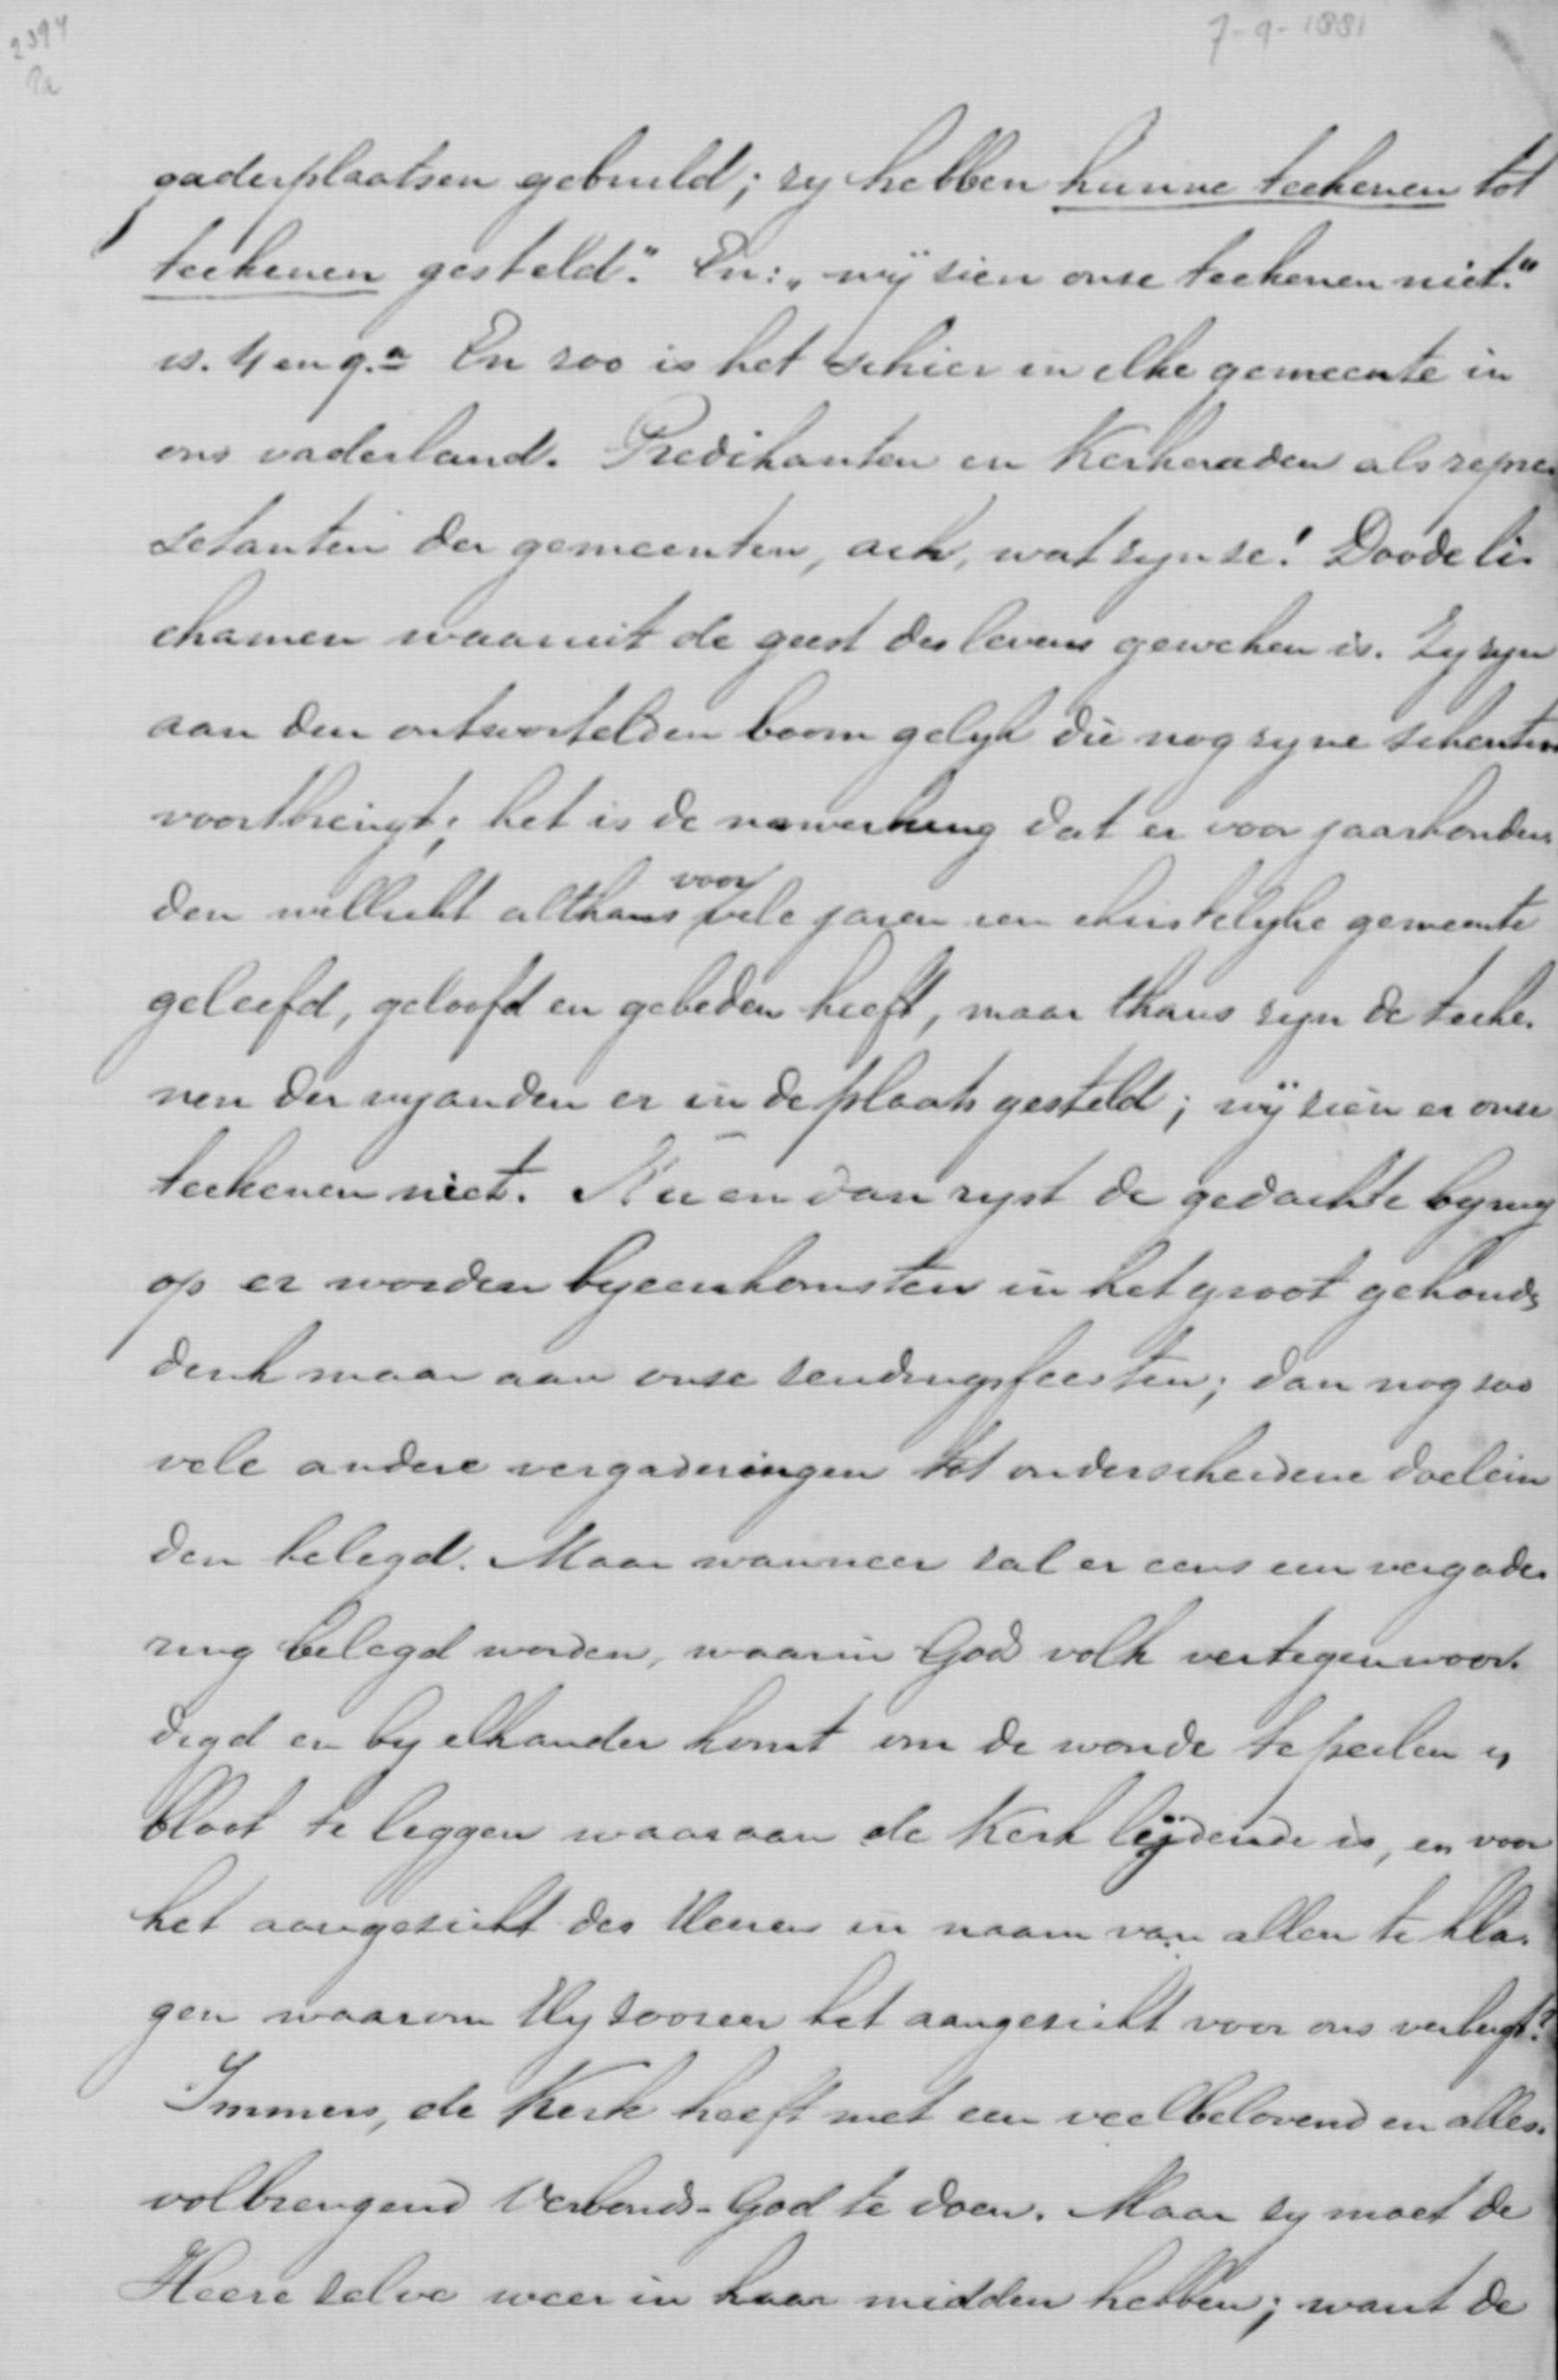 2394
7-9-1881
gaderplaatsen gebruld; zy hebben hunne teekenen tot
teekenen gesteld." En: "wÿ zien onze teekenen niet."
vs. 4 en 9.a En zoo is het schier in elke gemeente in
ons vaderland. Predikanten en Kerkeraden als repre
setanten der gemeenten, ach, wat zyn ze! Doode li-
chamen waaruit de geest des levens geweken is. Zy zyn
aan den ontwortelden boom gelyk die nog zyne scheuten
voortbrengt; het is de nawerking dat er voor jaarhonder
den wellicht althans voor vele jaren een christelyke gemeente
geleefd, geloofd en gebeden heeft, maar thans zyn de teeke-
nen der vyanden er in de plaats gesteld; wÿ zien er onze
teekenen niet. Nu en dan ryst de gedachte by my
op er worden byeenkomsten in het groot gehouden
denk maar aan onze zendingsfeesten; dan nog zoo
vele andere vergaderingen tot onderscheidene doelein
den belegd. Maar wanneer zal er eens een vergade-
ring belegd worden, waarin Gods volk vertegenwoor-
digd en by elkander komt om de wonde te peilen en
bloot te leggen waaraan de Kerk lÿdende is, en voor
het aangezicht des Heeren in naam van allen te kla-
gen waarom Hy zoozeer het aangezicht voor ons verbergt?
Immers, de Kerk heeft met een veelbelovend en alles-
volbrengend Verbonds-God te doen. Maar zy moet de
Heere zelve weer in haar midden hebben; want de